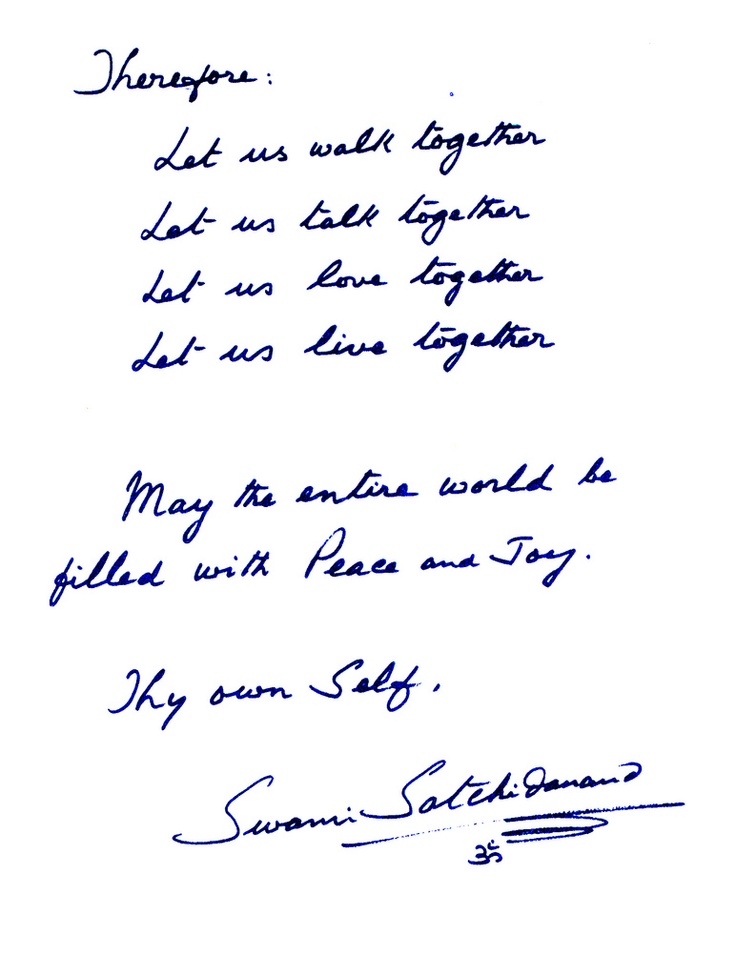 Therefore:
Let us walk together
Let us talk together
Let us love together
Let us live together
May the entire world be
filled with Peace and Joy.
Thy own Self,
Swami Satchidanand
ॐ